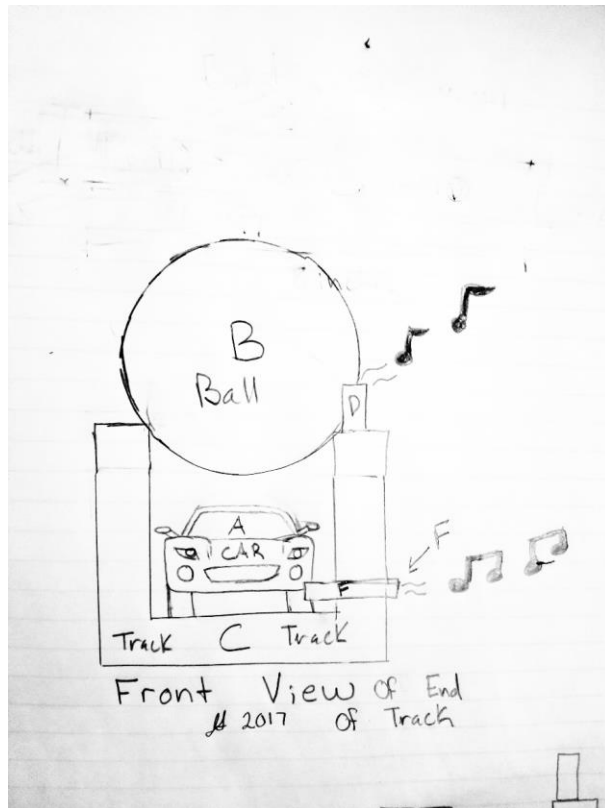 B
Ball
D
A
CAR
F
F
Track C Track
Front View Of End
2017 Of Track